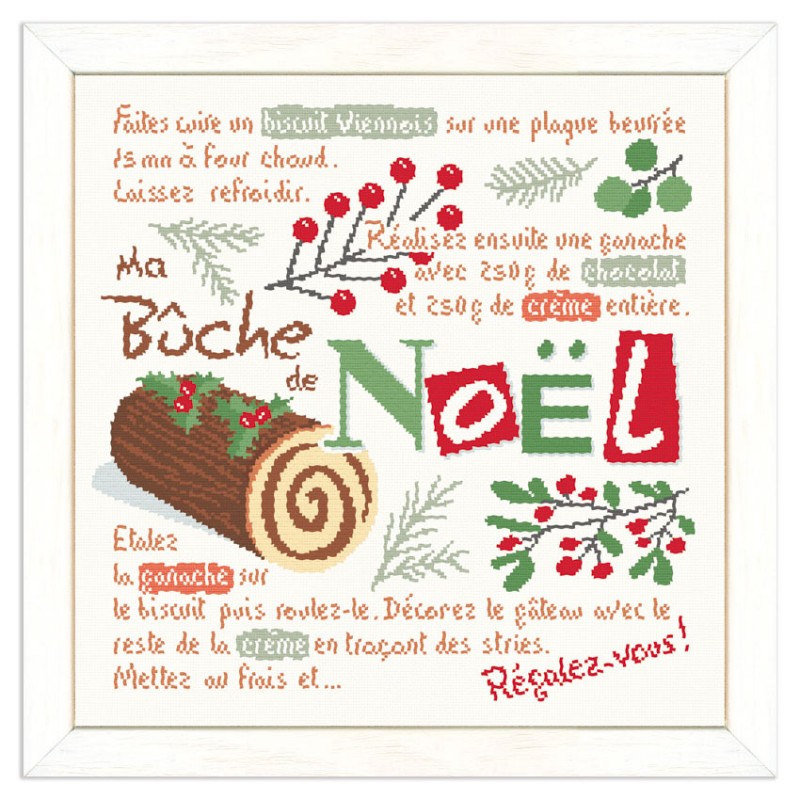 Faites cuire un biscuit Viennois sur une plaque beurrée
15 mn à four chaud.
Laissez refroidir.
Réalisez ensuite une ganache
avec 250g de chocolat
et 250g de crème entière.
Ma
Bûche
de NOËL
Etalez
la ganache sur
le biscuit puis roulez-le. Décorez le gâteau avec le
reste de la crème en traçant des stries.
Mettez au frais et...
Régalez-vous!